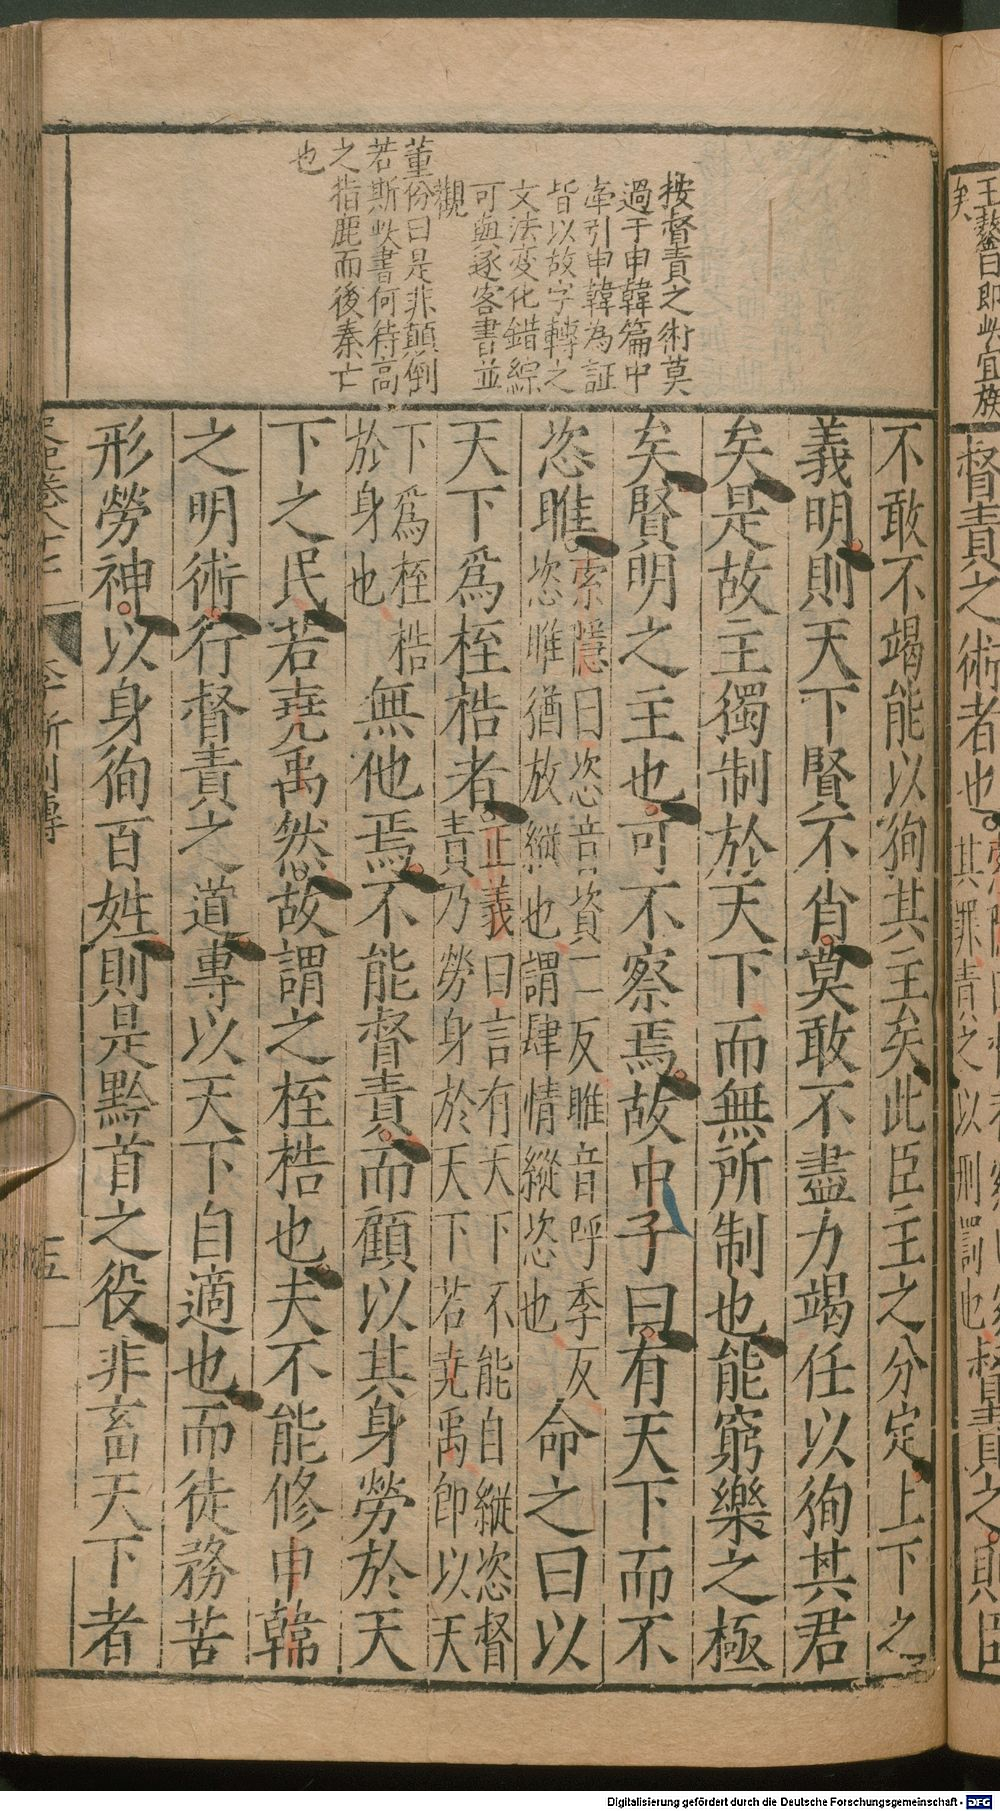 王鏊曰即此宜族
矣
督責之術者也
其罪責之以刑罰也督責之則臣
按督責之術莫
過于申韓篇中
牽引申韓為証
皆以故字轉之
文法变化錯綜
可與逐客書並
觀
董份曰是非顛倒
若斯此書何待高
之指鹿而後秦亡
也
不敢不竭能以徇其主矣此臣主之分定上下之
義明則天下賢不肖莫敢不盡力竭任以徇其君
矣是故主獨制於天下而無所制也能窮樂之極
矣賢明之主也可不察焉故申子曰有天下而不
恣睢
索隱曰恣音資二反睢音呼季反
恣睢猶放縱也謂肆情縱恣也
命之曰以
天下爲桎梏者
正義曰言有天下不能自縱恣督
責乃勞身於天下若堯禹即以天
下爲桎梏
於身也
無他焉不能督責而顧以其身勞於天
下之民若堯禹然故謂之桎梏也夫不能修申韓
之明術行督責之道專以天下自適也而徒務苦
形勞神以身徇百姓則是黔首之役非畜天下者
李斯列傳
十五
Digitalisierung gefördert durch die Deutsche Forschungsgemeinschaft - DFG